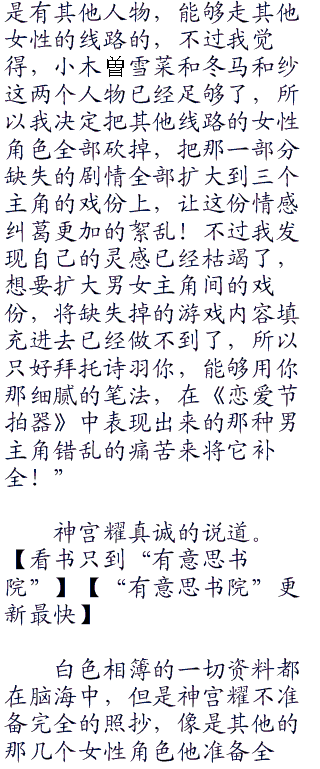 是有其他人物，能够走其他
女性的线路的，不过我觉
得，小木曽雪菜和冬马和纱
这两个人物已经足够了，所
以我决定把其他线路的女性
角色全部砍掉，把那一部分
缺失的剧情全部扩大到三个
主角的戏份上，让这份情感
纠葛更加的絮乱！不过我发
现自己的灵感已经枯竭了，
想要扩大男女主角间的戏
份，将缺失掉的游戏内容填
充进去已经做不到了，所以
只好拜托诗羽你，能够用你
那细腻的笔法，在《恋爱节
拍器》中表现出来的那种男
主角错乱的痛苦来将它补
全！”
神宫耀真诚的说道。
【看书只到“有意思书
院”】【“有意思书院”更
新最快】
白色相簿的一切资料都
在脑海中，但是神宫耀不准
备完全的照抄，像是其他的
那几个女性角色他准备全